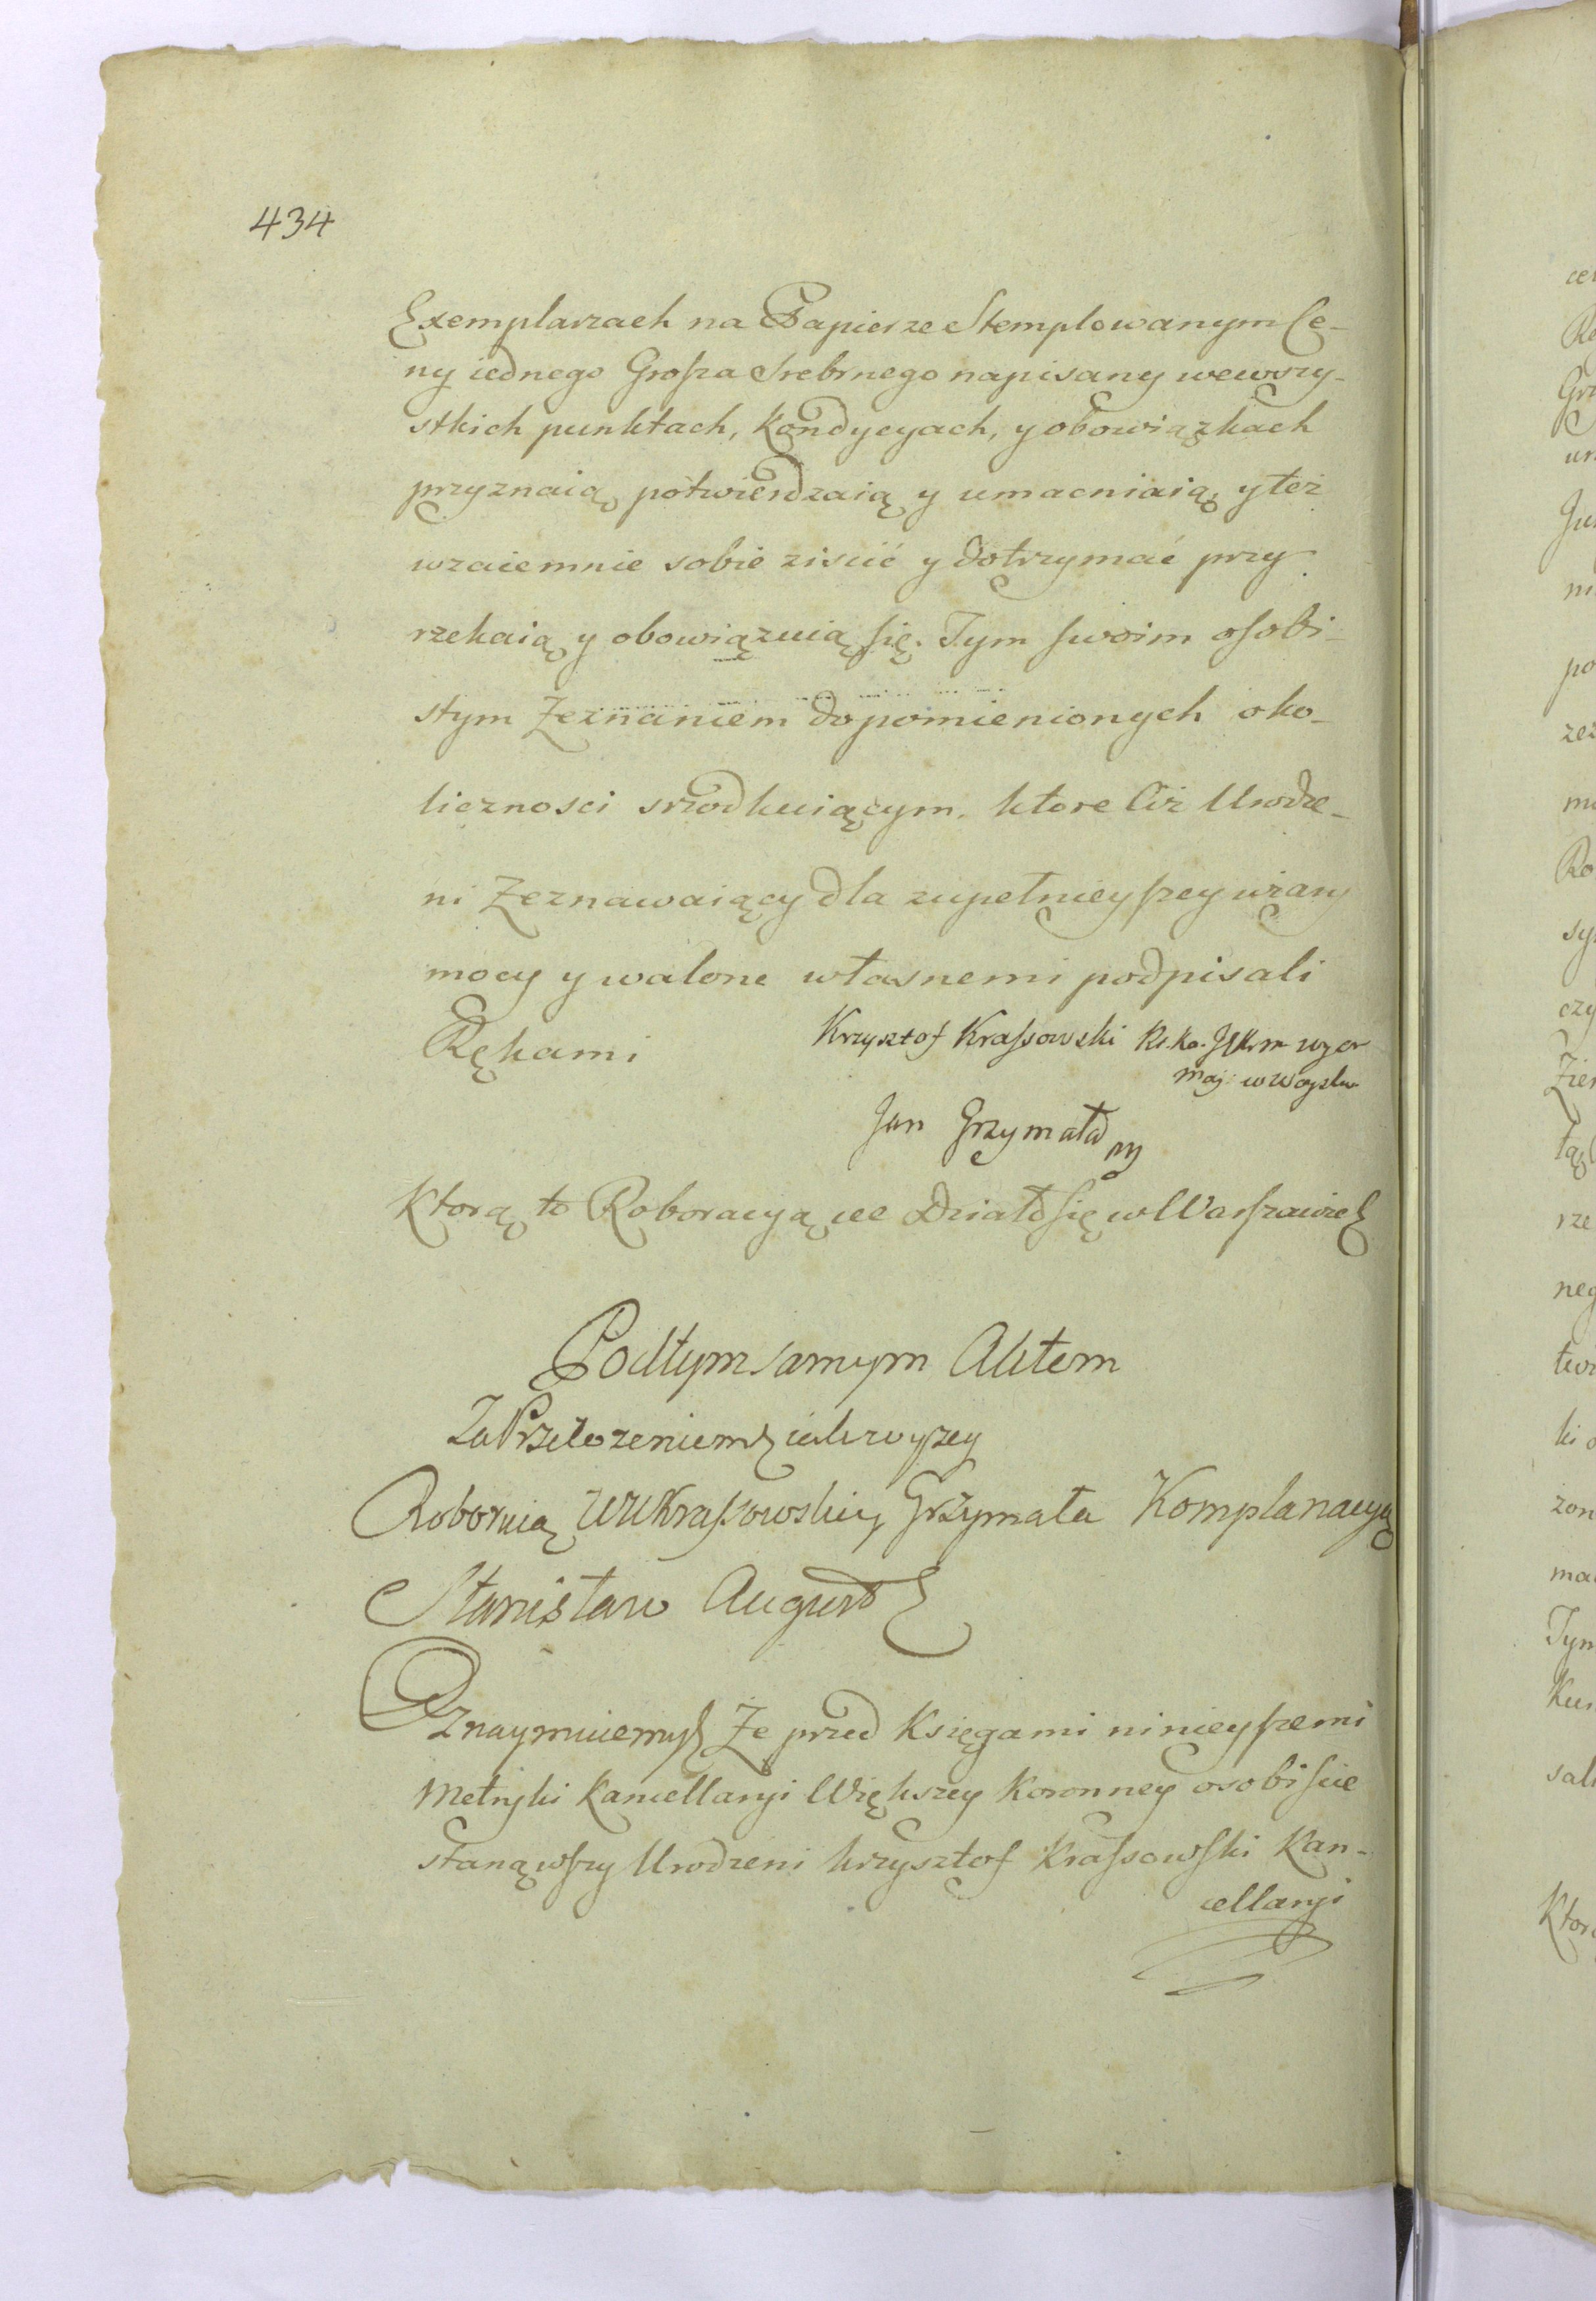 434
Exemplarzach na Papierze Stemplowanym Ce-
ny iednego Grosza Srebrnego napisany wewszy-
stkich punktach, Kondycyach, y obowiązkach
przyznaią potwierdzaią y umacniaią, y też
wzaiemnie sobie ziscić y dotrzymać przy
rzekaią y obowiązuią się. Tym swoim osobi-
stym Zeznaniem do pomienionych oko-
licznosci srzodkuiącym, ktore Ciż Urodze-
ni Zeznawaiący dla zupełnieyszey wiary
mocy y walone własnemi podpisali
Rękami
Krzysztof Krassowski
Jan Grzymała
Ktorą to Roboracyą etc Działo się w Warszawie
Pod tym samym Aktem
Za Przełożeniem iak wyzey
Roboruią UUr Krassowski y Grzymała Komplanacyą
Stanisław August
Oznaymuiemy Ze przed Księgami ninieyszemi
Metryki Kancellaryi Większey Koronney osobiscie
stanąwszy Urodzeni Krzysztof Krassowski Kan-
cellaryi